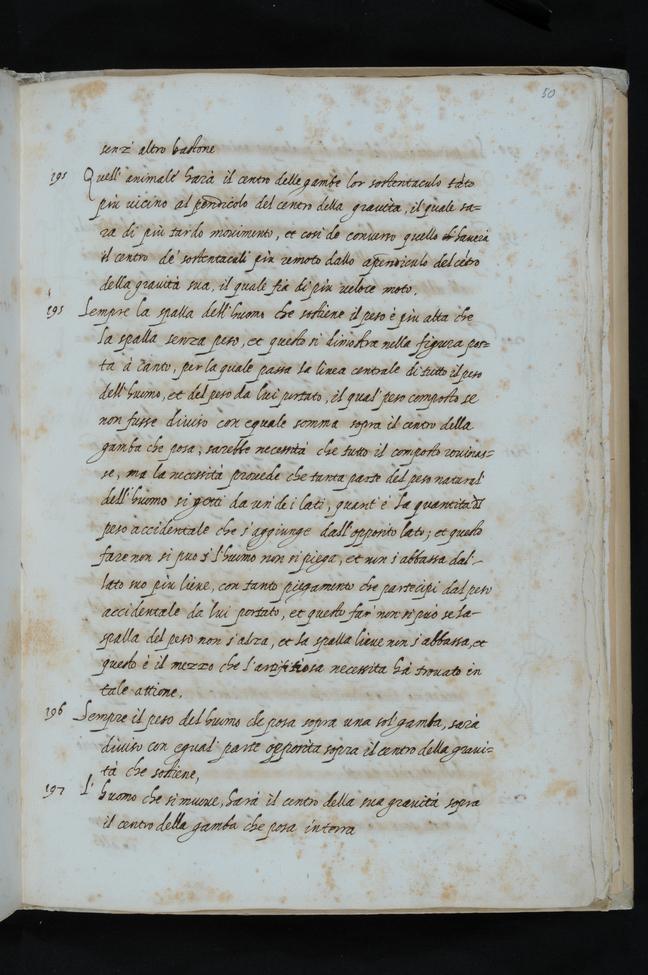 50
senz' altro bastone
195 Quell' animale harà il centro delle gambe lor sostentaculo tãto
più vicino al pendicolo del centro della gravità, il quale sa=
ra di più tardo movimento, et cosi de converso quello havera
il centro de' sostentaculi più remoto dallo apendiculo del cẽtro
della gravità sua, il quale fia di più veloce moto.
195 Sempre la spalla dell' huomo che sostiene il peso è più alta che
la spalla senza peso, et questo si dimostra nella figura pos=
ta à canto, per la quale passa la linea centrale di tutto il peso
dell' huomo, et del peso da lui portato, il qual' peso composto se
non fusse diviso con equale somma sopra il centro della
gamba che posa, sarebbe necessità che tutto il composto rovinas=
se, ma la necessità provede che tanta parte del peso natural'
dell' huomo si getti da un' de i lati, quant' è la quantità di
peso accidentale che s'aggiunge dall' opposito lato; et questo
fare non si puo s' l' huomo non si piega, et non s'abbassa dal'
lato suo più lieve, con tanto piegamento che partecipi dal peso
accidentale da lui portato, et questo far' non si può se la
spalla del peso non s'alza, et la spalla lieve non s'abbassa, et
questo è il mezzo che l'artifitiosa necessita hà trovato in
tale attione.
196 Sempre il peso del huomo che posa sopra una sol' gamba, sarà
diviso con equal' parte opposita sopra il centro della gravi=
tà che sostiene,
197 L' huomo che si muove, harà il centro della sua gravità sopra
il centro della gamba che posa in terra